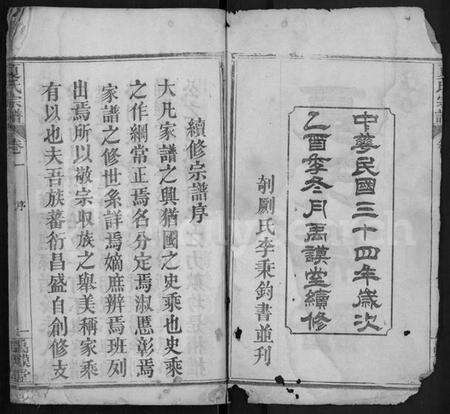 中華民國三十四年歲次
乙酉季冬月禹謨堂續修
剞劂氏李秉鈞書並刊
續修宗譜序
大凡家譜之興猶國之史乘也史乘
之作綱常正焉名分定焉淑慝彰焉
家譜之修世系詳焉嫡庶辨焉班列
出焉所以敬宗収族之舉美稱家乘
有以也夫吾族蕃衍昌盛自創修支
氏宗譜
卷一
序